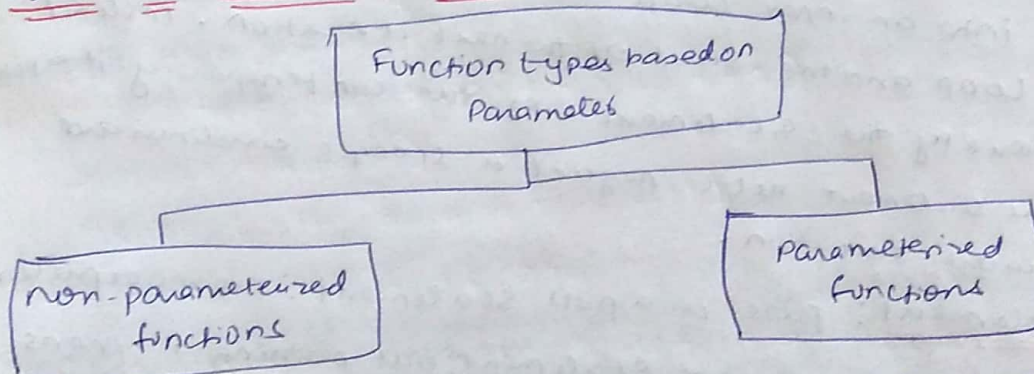 Function types based on
Parametes
non-parameterized
functions
parameterized
functions